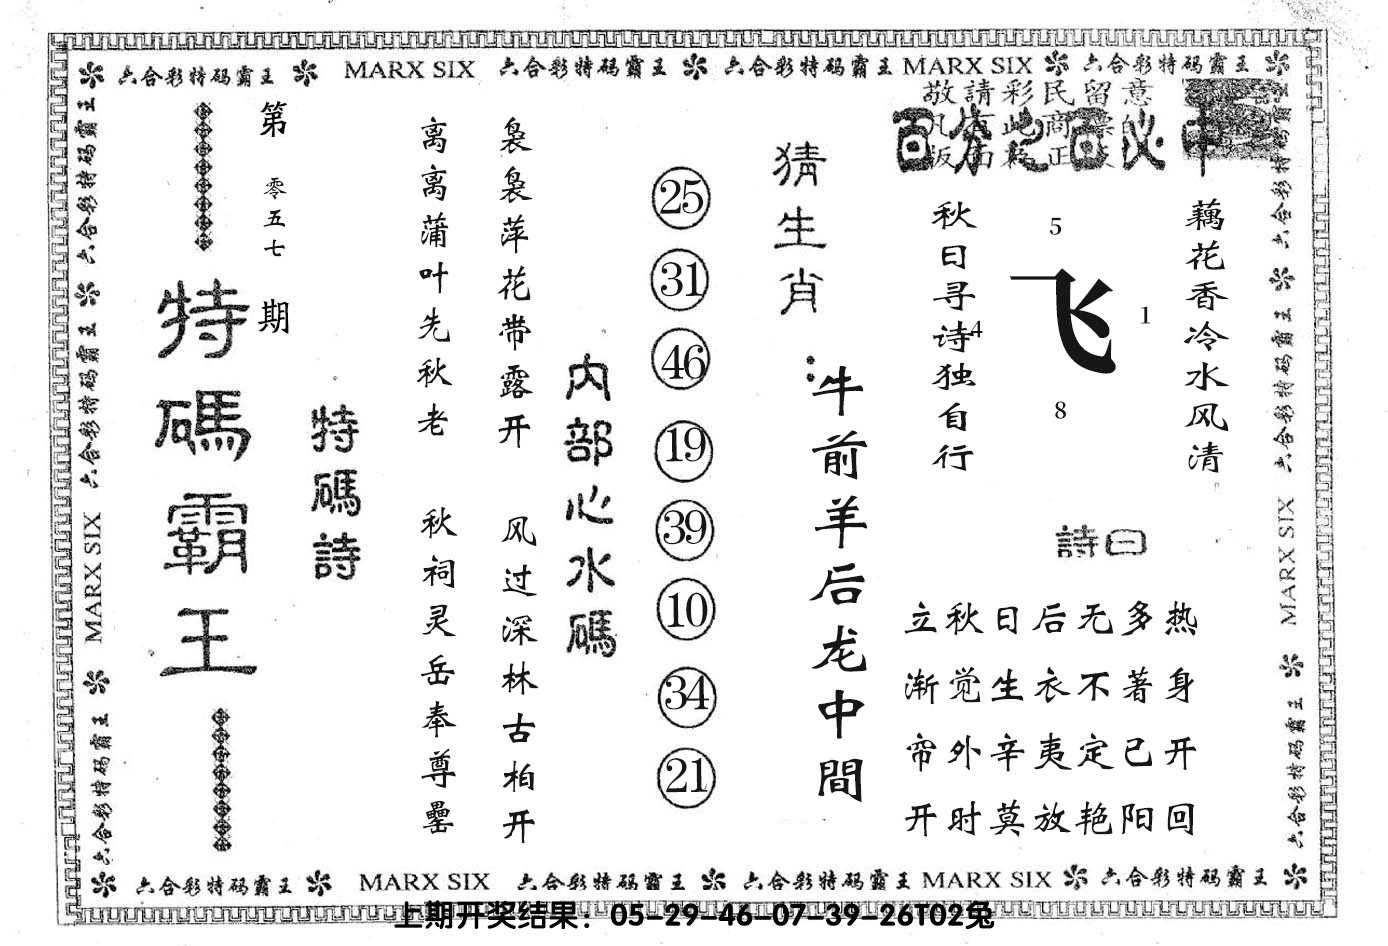 六合彩特码霸王 MARX SIX 六合彩特码霸王 六合彩特码霸王 MARX SIX 六合彩特码霸王
敬請彩民留意
百分之百必中
第零五七期
特碼霸王
特碼詩
离离蒲叶先秋老
秋祠灵岳奉尊罍
袅袅萍花带露开
风过深林古柏开
内部心水碼
25
31
46
19
39
10
34
21
猜生肖:
牛前羊后龙中間
秋日寻诗独自行
5
飞
4
1
8
藕花香冷水风清
詩曰
立秋日后无多热
渐觉生衣不著身
帘外辛夷定已开
开时莫放艳阳回
六合彩特码霸王 六合彩特码霸王 MARX SIX 六合彩特码霸王
六合彩特码霸王 六合彩特码霸王 MARX SIX 六合彩特码霸王
六合彩特码霸王 MARX SIX 六合彩特码霸王 六合彩特码霸王 MARX SIX 六合彩特码霸王
上期开奖结果：05-29-46-07-39-26T02兔